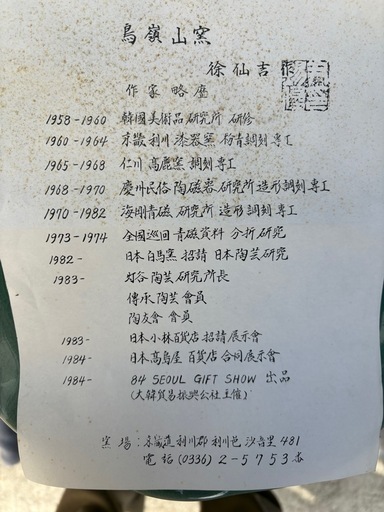 鳥嶺山窯
徐仙吉
作家略歷
1958-1960 韓國美術品研究所 研修
1960-1964 京畿利川 漆器窯 粉青調刻專工
1965-1968 仁川 高麗窯 調刻專工
1968-1970 慶州民俗 陶磁器 研究所 造形 調刻 專工
1970-1982 海剛青磁 研究所 造形 調刻 專工
1973-1974 全國巡回 青磁資料 分析 研究
1982- 日本白馬窯 招請 日本陶芸研究
1983- 谷 陶芸 研究所長
傳承 陶芸 會員
陶友會 會員
1983- 日本小林百貨店 招請 展示會
1984- 日本高島屋 百貨店 合同展示會
1984- 84 SEOUL GIFT SHOW 出品
(大韓貿易振興公社主催)
窯場: 京畿道利川郡 利川邑 沙音里 481
電話 (0336) 2-5753番